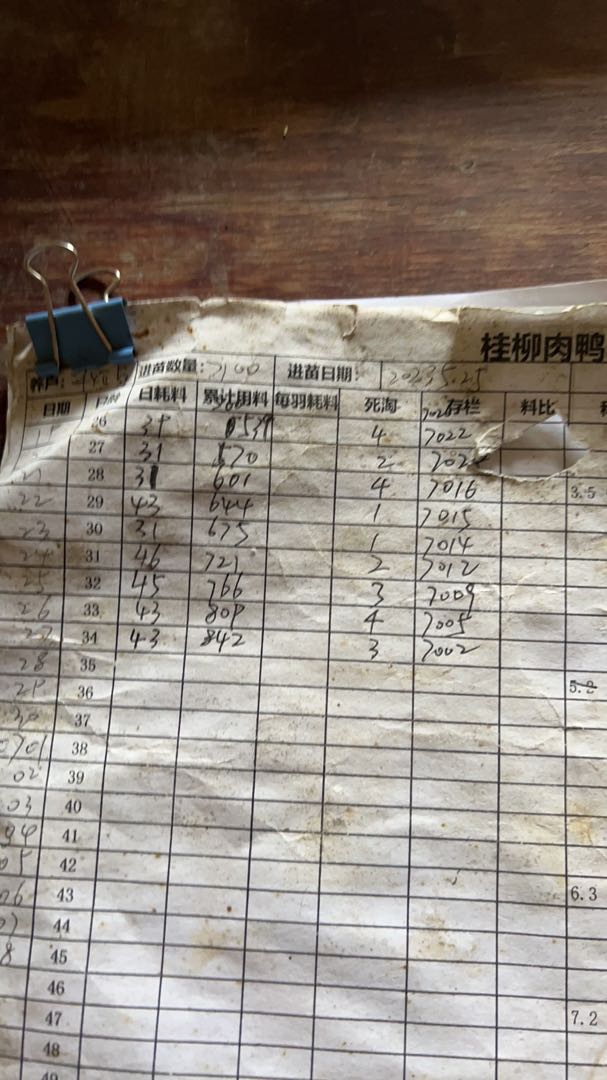 桂柳肉鸭
养户: 进苗数量: 7100 进苗日期: 2023.5.25
日期 日龄 日耗料 累计用料 每羽耗料 死淘 存栏 料比
26 39 539 4 7022
27 31 570 2
28 31 601 4 7016 3.5
22 29 43 644 1 7015
23 30 31 675 1 7014
24 31 46 721 2 7012
25 32 45 766 3 7009
26 33 43 809 4 7005
27 34 43 842 3 7002
28 35
29 36 5.2
30 37
0701 38
02 39
03 40
04 41
05 42
06 43 6.3
07 44
8 45
46
47 7.2
48
49